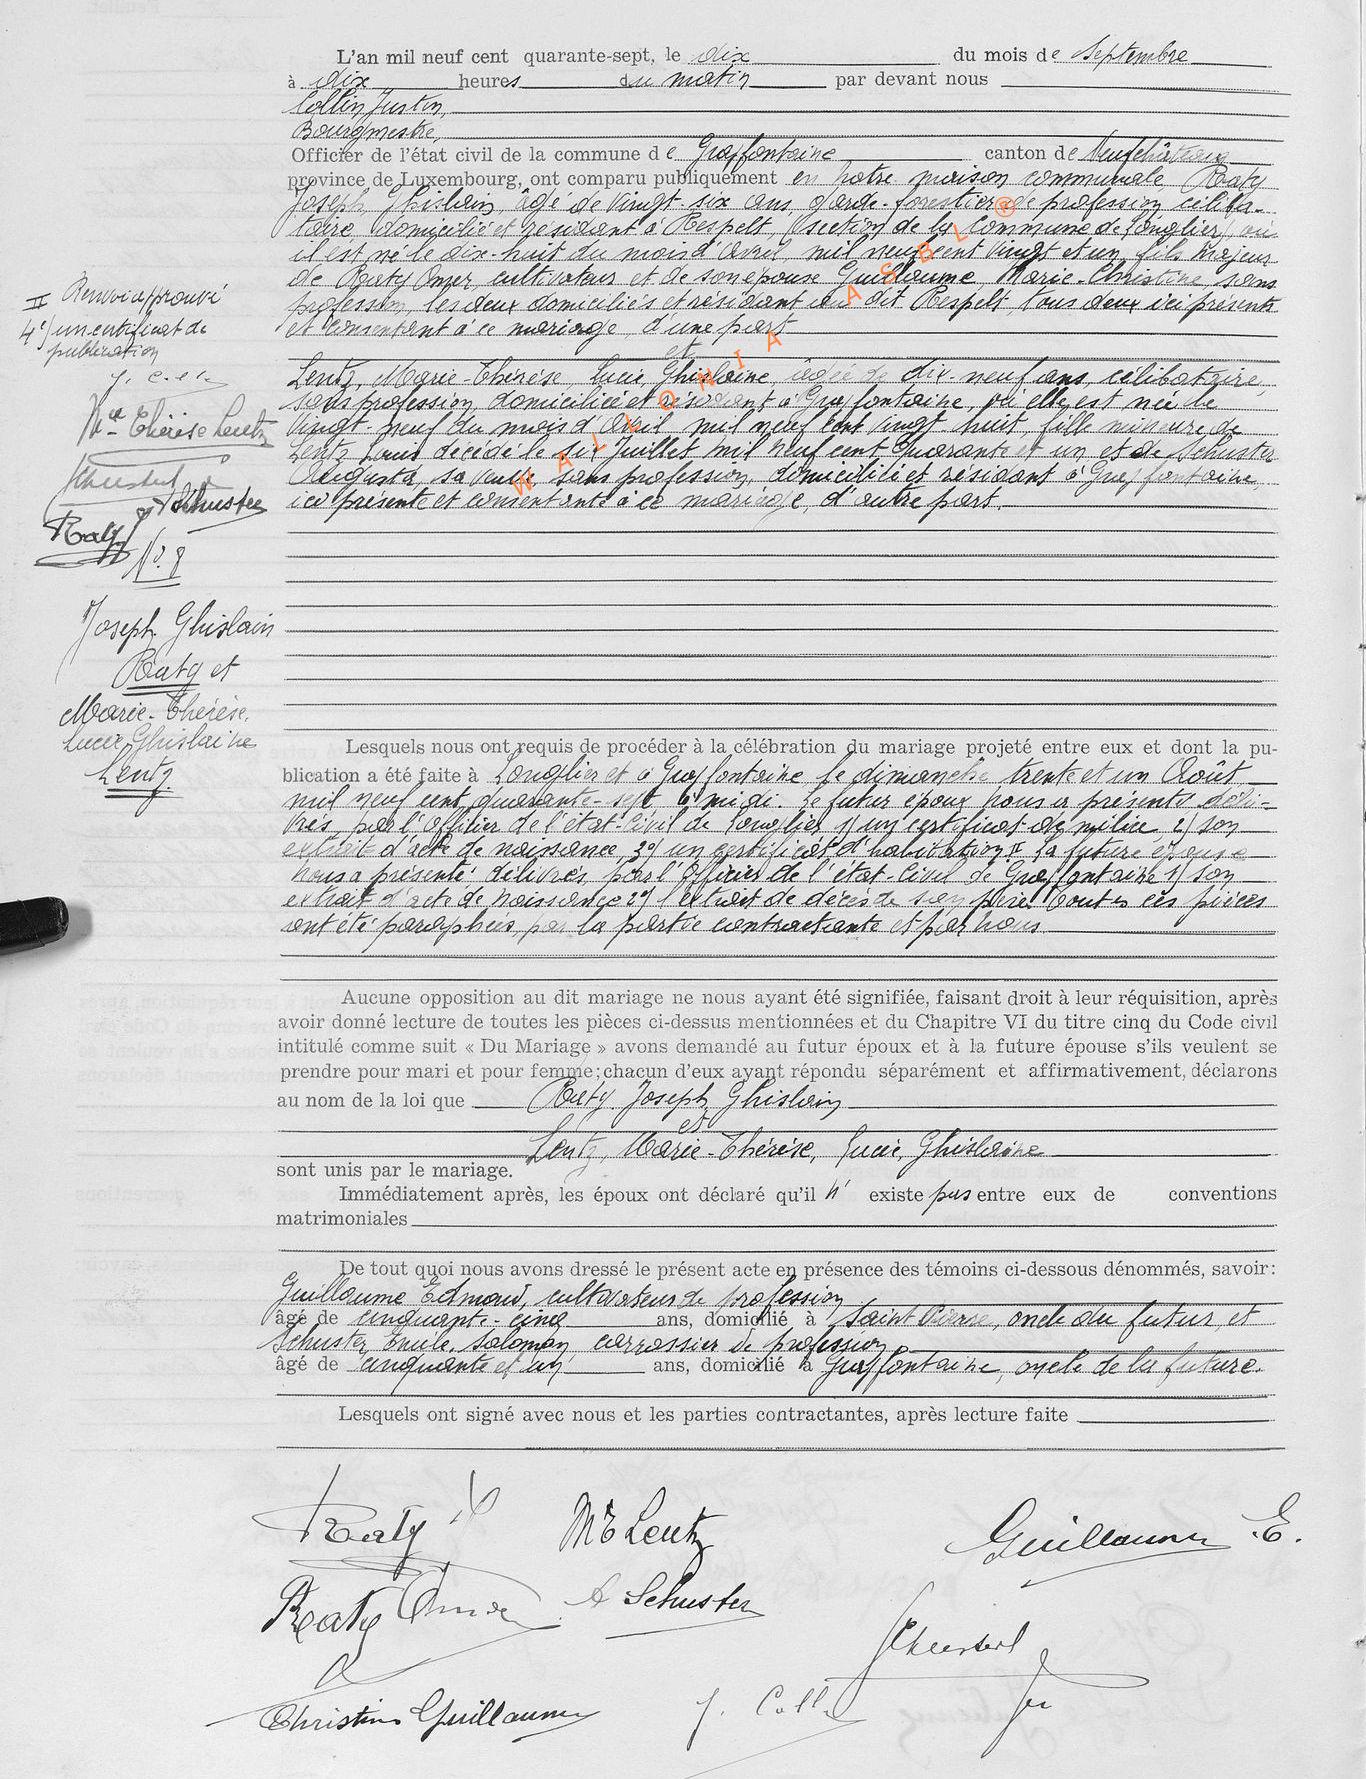 L'an mil neuf cent quarante-sept, le dix du mois de Septembre
à dix heures du matin par devant nous
Collin Justin,
Bourgmestre,
Officier de l'état civil de la commune de Grapfontaine canton de Neufchâteau
province de Luxembourg, ont comparu publiquement en notre maison communale Raty
Joseph Ghislain, âgé de vingt-six ans, garde-forestier de profession céliba-
taire domicilié et résidant à Respelt, (section de la Commune de Longlier) où
il est né le dix-huit du mois d'Avril, mil neuf cent vingt et un, fils majeur
de Raty Omer, cultivateur et de son épouse Guillaume, Marie-Christine, sans
profession, les deux domiciliés et résidant au dit Respelt, tous deux ici présents
et consentant à ce mariage, d'une part
et
Lentz, Marie-Thérèse, Lucie, Ghislaine, âgée de dix-neuf ans, célibataire,
sans profession, domiciliée et résidant à Grapfontaine, où elle est née le
vingt-neuf du mois d'Avril mil neuf cent vingt huit, fille mineure de
Lentz Louis décédé le six Juillet mil neuf cent quarante et un et de Schuster
Augusta, sa veuve sans profession, domiciliée et résidant à Grapfontaine,
ici présente et consentante à ce mariage, d'autre part.
WALLONIA ASBL ®
II Renvoi approuvé
4°/ un certificat de
publication
J. Coll
Mie Thérèse Lentz
A Schuster
Raty
No. 8
Joseph Ghislain
Raty et
Marie-Thérèse,
Lucie Ghislaine
Lentz.
Lesquels nous ont requis de procéder à la célébration du mariage projeté entre eux et dont la pu-
blication a été faite à Longlier et à Grapfontaine le dimanche trente et un Août
mil neuf cent quarante-sept à midi. Le futur époux nous a présenté déli-
vrés par l'officier de l'état-civil de Longlier 1) un certificat de milice 2) son
extrait d'acte de naissance, 3°/ un certificat d'habitation II La future épouse
nous a présenté délivrés par l'officier de l'état-civil de Grapfontaine 1) son
extrait d'acte de naissance 2°/ l'extrait de décès de son père. Toutes ces pièces
ont été paraphées, par la partie contractante et par nous.
Aucune opposition au dit mariage ne nous ayant été signifiée, faisant droit à leur réquisition, après
avoir donné lecture de toutes les pièces ci-dessus mentionnées et du Chapitre VI du titre cinq du Code civil
intitulé comme suit « Du Mariage » avons demandé au futur époux et à la future épouse s'ils veulent se
prendre pour mari et pour femme; chacun d'eux ayant répondu séparément et affirmativement, déclarons
au nom de la loi que Raty, Joseph, Ghislain
et
Lentz, Marie-Thérèse, Lucie, Ghislaine
sont unis par le mariage.
Immédiatement après, les époux ont déclaré qu'il n' existe pas entre eux de conventions
matrimoniales
De tout quoi nous avons dressé le présent acte en présence des témoins ci-dessous dénommés, savoir:
Guillaume Edmond, cultivateur de profession
âgé de cinquante-cinq ans, domicilié à Saint Pierre, oncle du futur, et
Schuster Emile, Salomon carrossier de profession
âgé de cinquante et un ans, domicilié à Grapfontaine, oncle de la future.
Lesquels ont signé avec nous et les parties contractantes, après lecture faite
Raty
MT Lentz
Guillaume E.
Raty Omer
A Schuster
Christine Guillaume
J. Coll